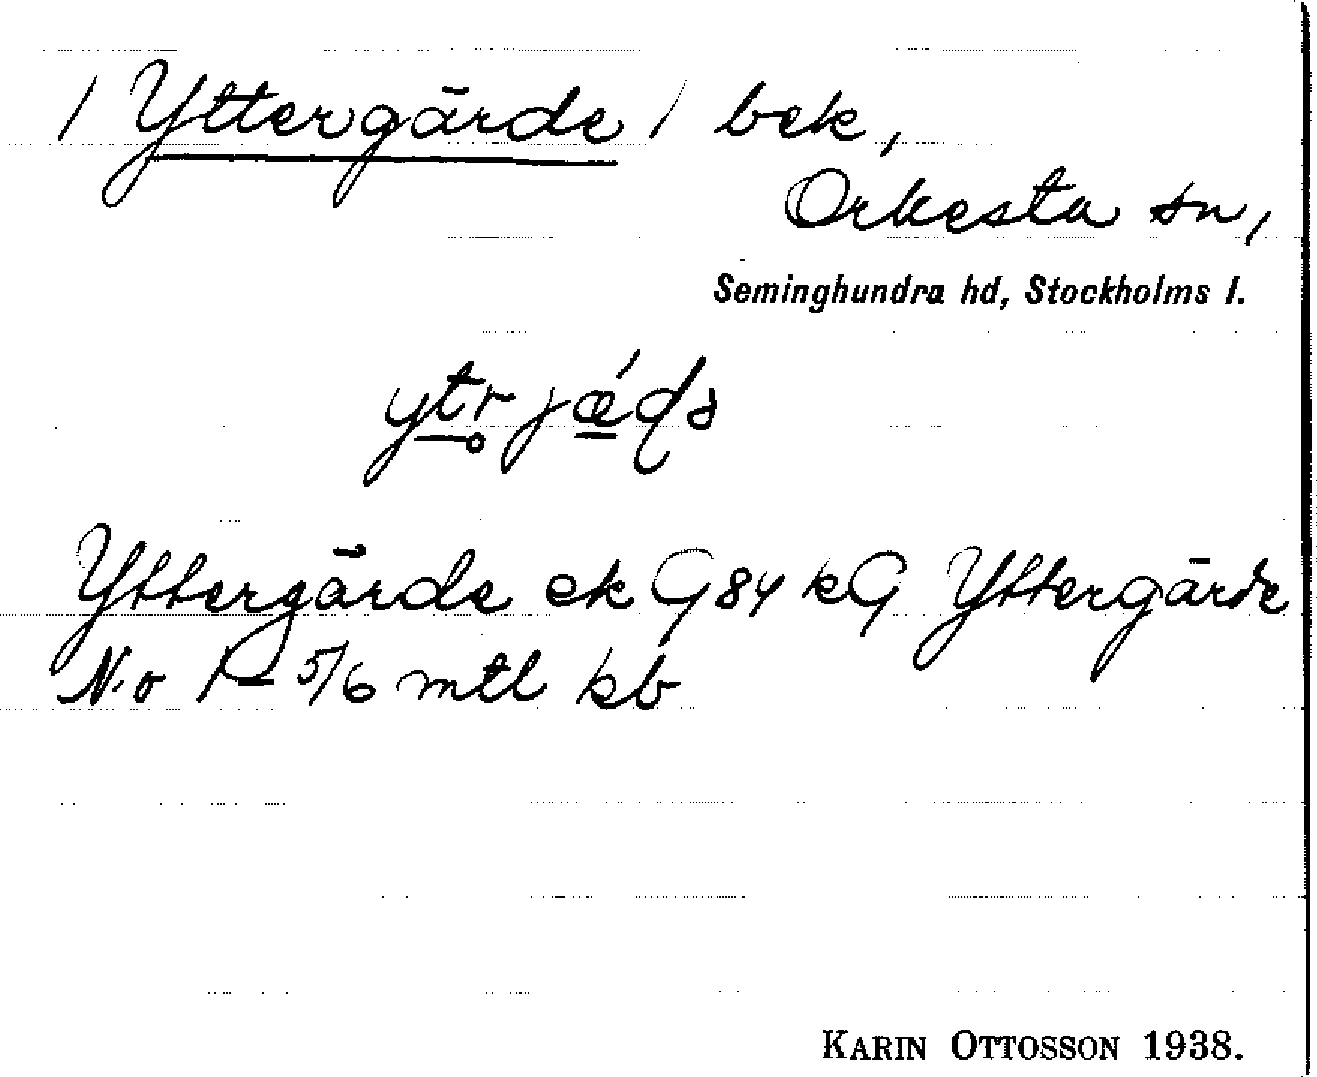 / Yttergärde / bek,
Orkesta sn,
Seminghundra hd, Stockholms l.
Yttergärde ek G 84 kG Yttergärde
N:o 1 — 5/6 mtl kb
KARIN OTTOSSON 1938.